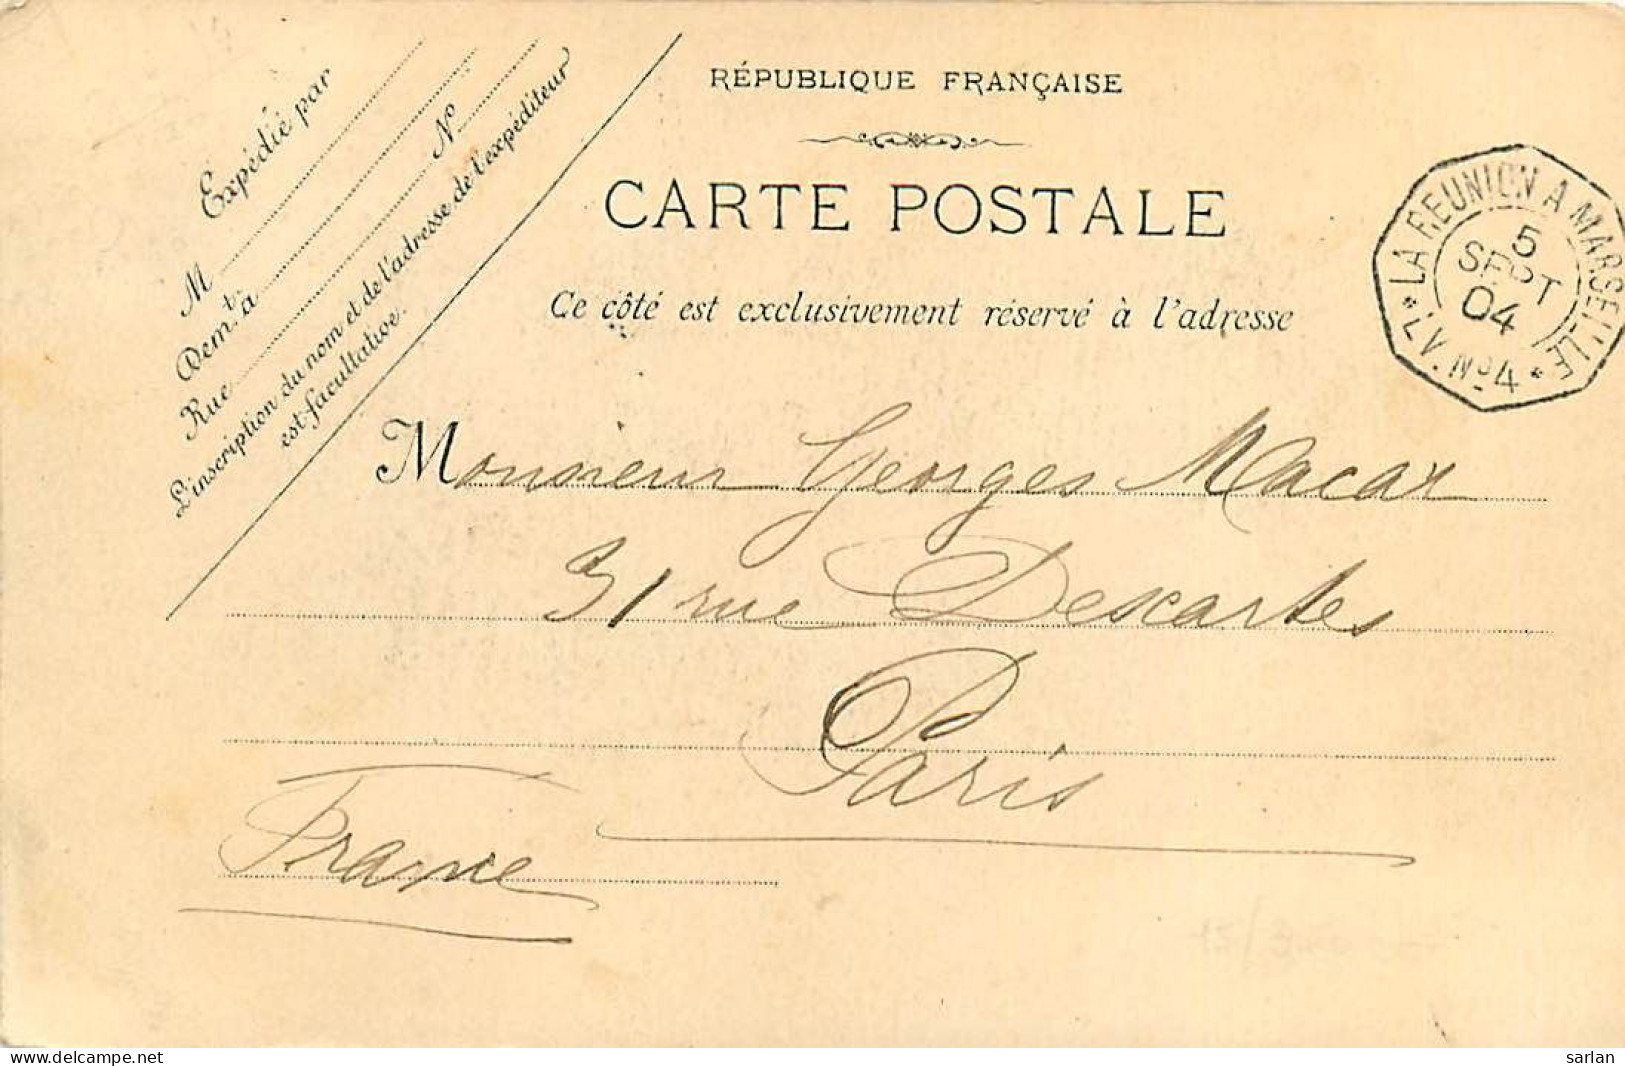 RÉPUBLIQUE FRANÇAISE
CARTE POSTALE
Ce côté est exclusivement réservé à l'adresse
Expédié par
M
Demt. à
Rue Nº
L'inscription du nom et de l'adresse de l'expéditeur
est facultative.
LA REUNION A MARSEILLE
5
SEPT
04
* LV. Nº4 *
Monsieur Georges Macar
31 rue Descartes
Paris
France
delcampe.net
sarlan